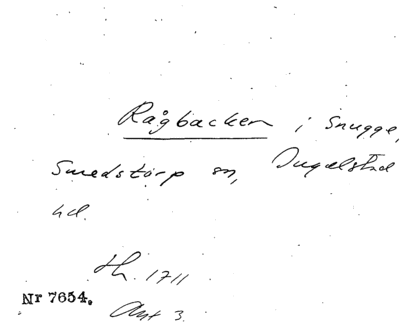 Rågbacken i Snugge,
Smedstorp sn, Ingelstad
hd.
th. 1711
Nr 7654.
Ant 3.